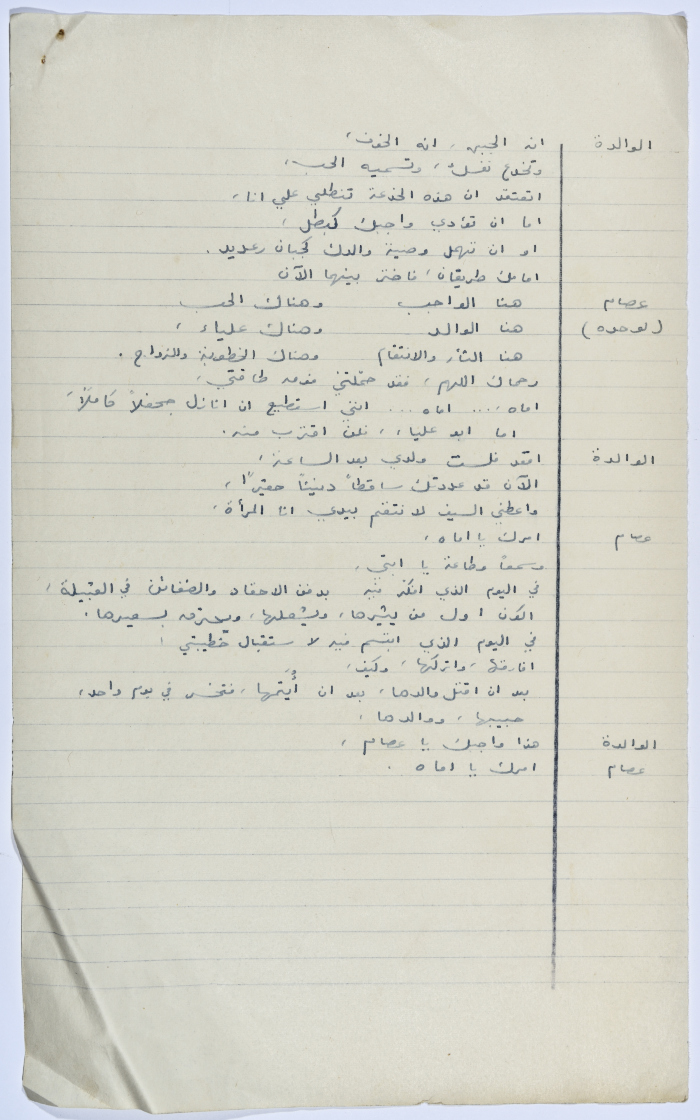 الوالدة انه الجبن، انه الخوف،
وتخدع نفسك، وتسميه الحب،
اتعتقد ان هذه الخدعة تنطلي علي انا،
اما ان تؤدي واجبك كبطل،
او ان تهمل وصية والدك كجبان رعديد.
امامك طريقان، فاختر بينهما الآن
عصام هنا الواجب وهناك الحب
(لوحده) هنا الوالد وهناك علياء،
هنا الثأر والانتقام وهناك الخطوبة والزواج.
رحماك اللهم، فقد حمّلتني فوق طاقتي،
اماه.... اماه... انني استطيع ان انازل جحفلاً كاملاً،
اما ابو علياء، فلن اقترب منه.
الوالدة افقد فلست ولدي بعد الساعة،
الآن قد عددتك ساقطاً دنيئاً حقيراً،
واعطني السيف لانتقم بيدي انا المرأة،
عصام امرك يا اماه،
وسمعاً وطاعة يا امي،
في اليوم الذي افكر فيه بدفن الاحقاد والضغائن في القبيلة،
اكون اول من يثيرها، ويشعلها، ويحترق بسعيرها.
في اليوم الذي ابتسم فيه لاستقبال خطيبتي
افارقها، واتركها، وكيف،
بعد ان اقتل والدها، بعد ان أُيَتِّمها، فتخسر في يوم واحد،
حبيبها، ووالدها،
الوالدة هذا واجبك يا عصام،
عصام امرك يا اماه.